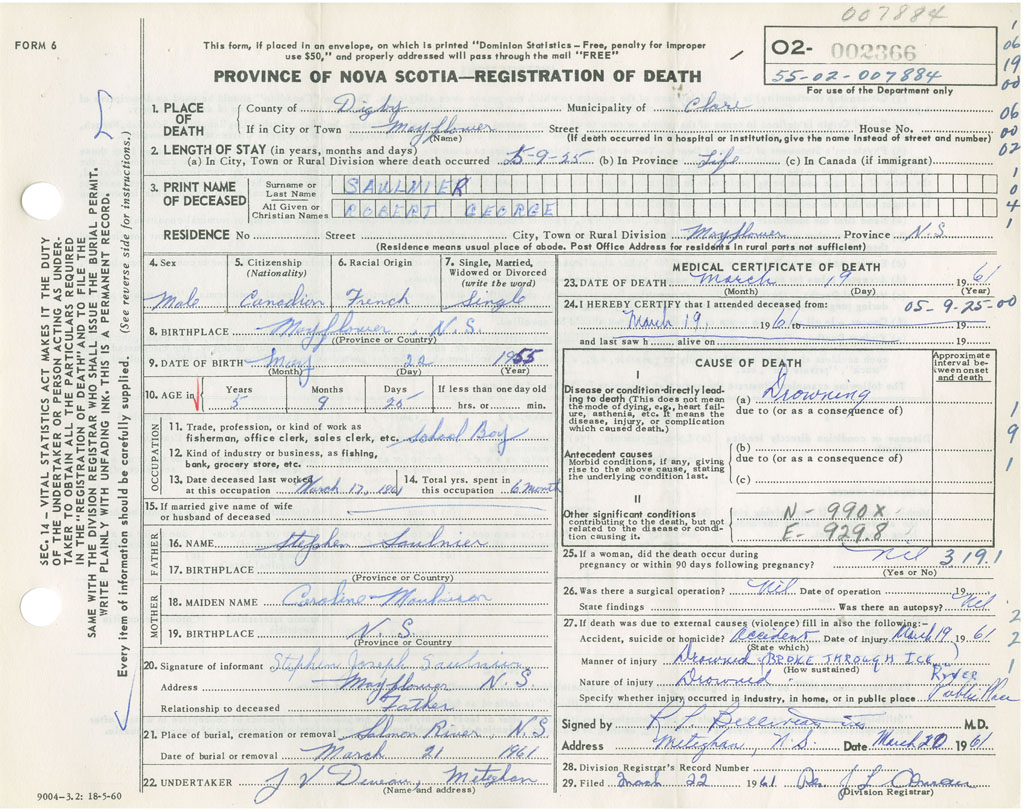 007884
FORM 6
This form, if placed in an envelope, on which is printed "Dominion Statistics—Free, penalty for improper
use $50," and properly addressed will pass through the mail "FREE"
PROVINCE OF NOVA SCOTIA—REGISTRATION OF DEATH
02- 002366
55-02-007884
For use of the Department only
1. PLACE OF DEATH
County of Digby Municipality of Clare
If in City or Town Mayflower Street House No.
(Name) (If death occurred in a hospital or institution, give the name instead of street and number)
2. LENGTH OF STAY (in years, months and days)
(a) In City, Town or Rural Division where death occurred 5-9-25 (b) In Province Life (c) In Canada (if immigrant)
3. PRINT NAME OF DECEASED
Surname or Last Name SAULNIER
All Given or Christian Names ROBERT GEORGE
RESIDENCE No Street City, Town or Rural Division Mayflower Province N.S.
(Residence means usual place of abode. Post Office Address for residents in rural parts not sufficient)
4. Sex
Male
5. Citizenship (Nationality)
Canadian
6. Racial Origin
French
7. Single, Married, Widowed or Divorced (write the word)
Single
8. BIRTHPLACE Mayflower, N.S.
(Province or Country)
9. DATE OF BIRTH May 22 1955
(Month) (Day) (Year)
10. AGE in Years Months Days If less than one day old
5 9 25 hrs. or min.
OCCUPATION
11. Trade, profession, or kind of work as
fisherman, office clerk, sales clerk, etc. School Boy
12. Kind of industry or business, as fishing,
bank, grocery store, etc.
13. Date deceased last worked
at this occupation March 17, 1961
14. Total yrs. spent in
this occupation 6 month
15. If married give name of wife
or husband of deceased
FATHER
16. NAME Stephen Saulnier
17. BIRTHPLACE
(Province or Country)
MOTHER
18. MAIDEN NAME Caroline
19. BIRTHPLACE N.S.
(Province or Country
20. Signature of informant Stephen Joseph Saulnier
Address Mayflower N.S.
Relationship to deceased Father
21. Place of burial, cremation or removal Salmon River, N.S.
Date of burial or removal March 21 1961
22. UNDERTAKER J V Meteghan
(Name and address)
9004-3.2: 18-5-60
MEDICAL CERTIFICATE OF DEATH
23. DATE OF DEATH March 19 1961
(Month) (Day) (Year)
24. I HEREBY CERTIFY that I attended deceased from: 05-9-25-00
March 19, 1961 to 19
and last saw h alive on 19
CAUSE OF DEATH
Approximate interval between onset and death
I
Disease or condition directly leading to death (This does not mean the mode of dying, e.g., heart failure, asthenia, etc. It means the disease, injury, or complication which caused death.)
(a) Drowning
due to (or as a consequence of)
Antecedent causes
Morbid conditions, if any, giving rise to the above cause, stating the underlying condition last.
(b)
due to (or as a consequence of)
(c)
II
Other significant conditions
contributing to the death, but not related to the disease or condition causing it.
N - 990X
E - 929.8
25. If a woman, did the death occur during
pregnancy or within 90 days following pregnancy? Nil 319.1
(Yes or No)
26. Was there a surgical operation? Nil Date of operation 19
State findings Was there an autopsy? Nil
27. If death was due to external causes (violence) fill in also the following:-
Accident, suicide or homicide? Accident Date of injury March 19 1961
(State which)
Manner of injury Drowned (BROKE THROUGH ICE
(How sustained) River
Nature of injury Drowned
Specify whether injury occurred in industry, in home, or in public place Public Place
Signed by M.D.
Address Meteghan, N.S. Date March 20 1961
28. Division Registrar's Record Number
29. Filed March 22 1961
(Division Registrar)
SEC. 14 — VITAL STATISTICS ACT MAKES IT THE DUTY
OF THE UNDERTAKER OR PERSON ACTING AS UNDER-
TAKER TO OBTAIN ALL THE PARTICULARS REQUIRED
IN THE "REGISTRATION OF DEATH" AND TO FILE THE
SAME WITH THE DIVISION REGISTRAR WHO SHALL ISSUE THE BURIAL PERMIT.
WRITE PLAINLY WITH UNFADING INK. THIS IS A PERMANENT RECORD.
Every item of information should be carefully supplied. (See reverse side for instructions.)